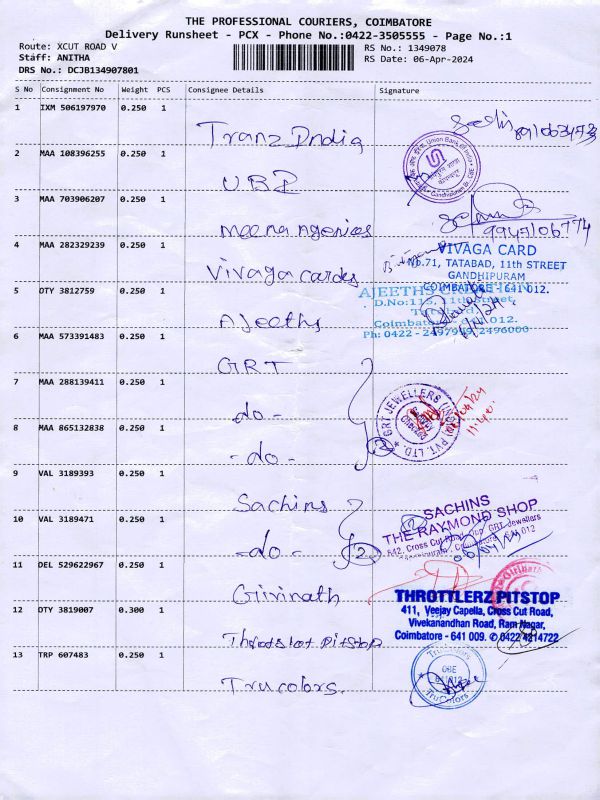 THE PROFESSIONAL COURIERS, COIMBATORE
Delivery Runsheet - PCX - Phone No.:0422-3505555 - Page No.:1
Route: XCUT ROAD V
RS No.: 1349078
Staff: ANITHA
RS Date: 06-Apr-2024
DRS No.: DCJB134907801
S No Consignment No Weight PCS Consignee Details Signature
1 IXM 506197970 0.250 1
Tranz India
2 MAA 108396255 0.250 1
Union Bank of India
UBI
3 MAA 703906207 0.250 1
9947106774
Meena Agencies
4 MAA 282329239 0.250 1
VIVAGA CARD
No.71, TATABAD, 11th STREET
GANDHIPURAM
COIMBATORE - 641 012.
Vivaga Cardes
5 DTY 3812759 0.250 1
AJEETHS
D.No:115, 11th Street,
Coimbatore
Ph: 0422 - 2497949, 2496000
Ajeeths
6 MAA 573391483 0.250 1
GRT
7 MAA 288139411 0.250 1
GRT JEWELLERS (INDIA) PVT. LTD.
-do-
8 MAA 865132838 0.250 1
2
-do-
9 VAL 3189393 0.250 1
Sachins
SACHINS
THE RAYMOND SHOP
442, Cross Cut Road, Opp. GRT Jewellers
Coimbatore 012
10 VAL 3189471 0.250 1
-do- 2
11 DEL 529622967 0.250 1
Girinath
12 DTY 3819007 0.300 1
THROTTLERZ PITSTOP
411, Veejay Capella, Cross Cut Road,
Vivekanandhan Road, Ram Nagar,
Coimbatore - 641 009. ✆ 0422 4814722
PitStop
13 TRP 607483 0.250 1
TruColors
CBE
641012
TruColors
Trucolors.